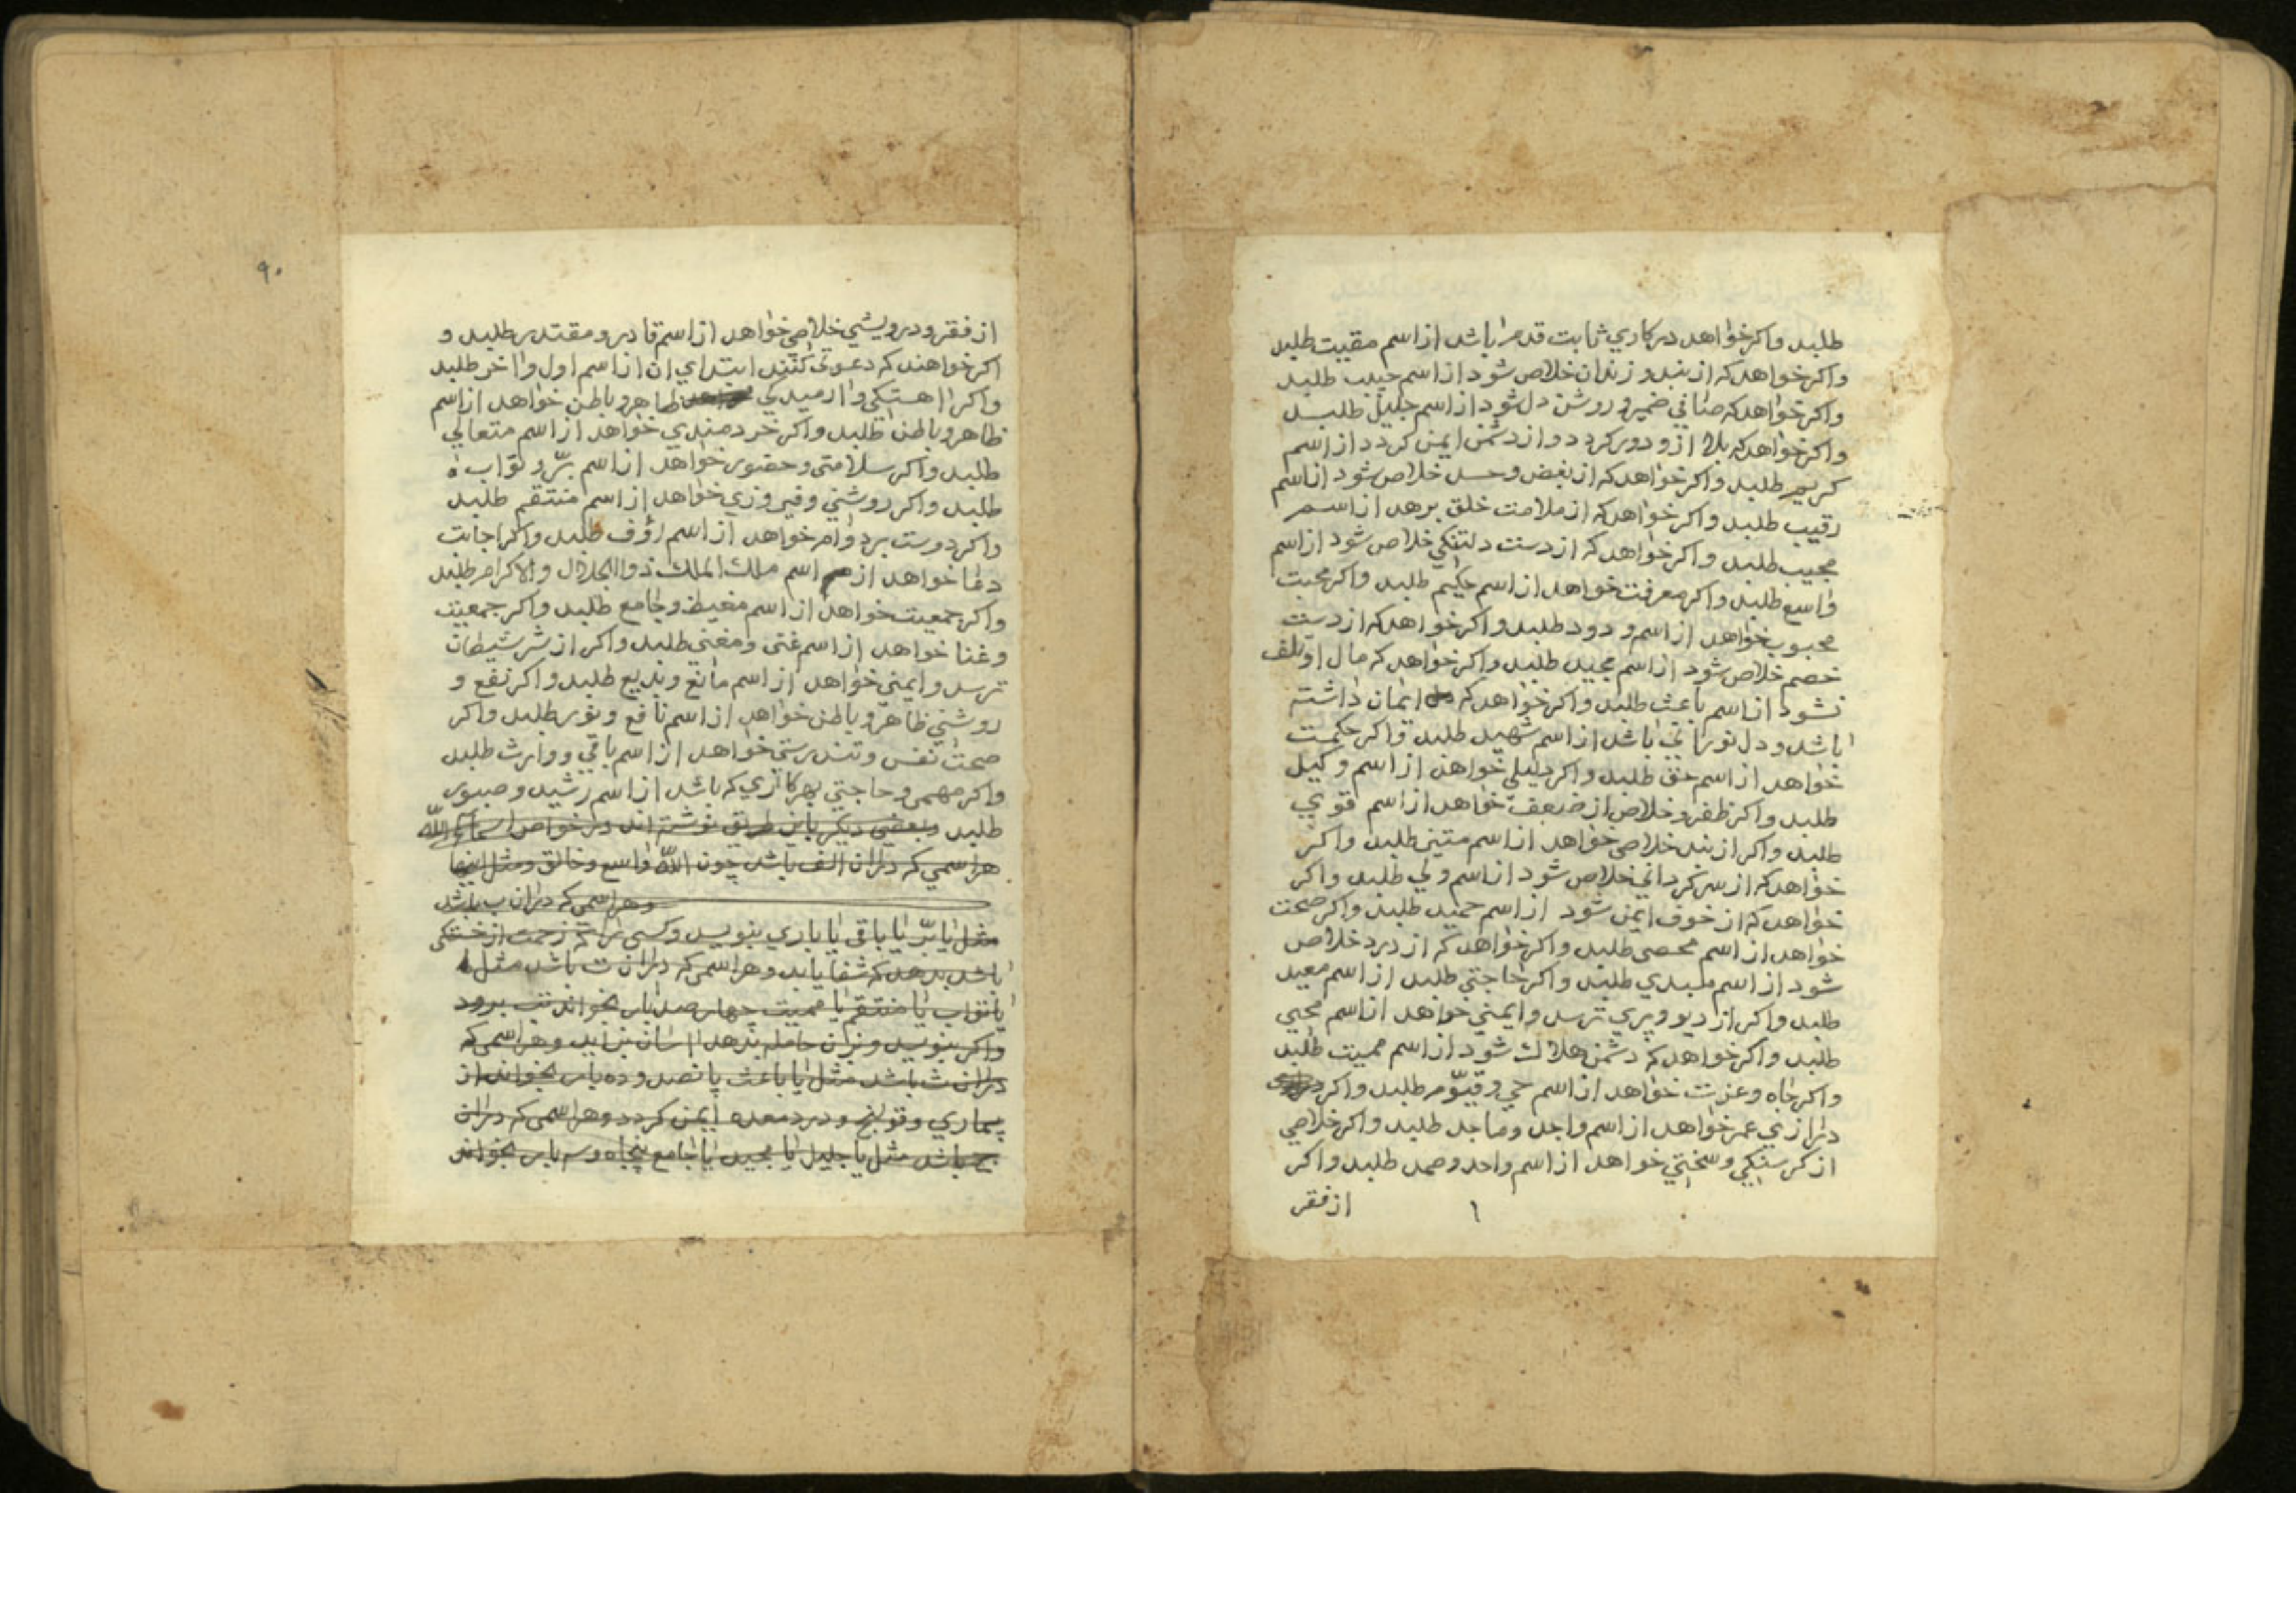 طلبد واکر خواهد در کاري ثابت قدم باشد از اسم مقیت طلبد
واکر خواهد که از بند و زندان خلاص شود از اسم حسیب طلبد
واکر خواهد که صافي ضمیر و روشن دل شود از اسم جلیل طلبد
واکر خواهد که بلا ازو دور کردد و از دشمن ایمن کردد از اسم
کریم طلبد واکر خواهد که از بغض و حسد خلاص شود از اسم
رقیب طلبد واکر خواهد که از ملامت خلق برهد از اسم
مجیب طلبد واکر خواهد که از دست دلتنکي خلاص شود از اسم
واسع طلبد واکر معرفت خواهد از اسم حکیم طلبد واکر محبت
محبوب خواهد از اسم ودود طلبد واکر خواهد که از دست
خصم خلاص شود از اسم مجید طلبد واکر خواهد که مال او تلف
نشود از اسم باعث طلبد واکر خواهد که ایمان داشته
باشد و دل نوراني باشد از اسم شهید طلبد واکر حکمت
خواهد از اسم حق طلبد واکر دلیلي خواهد از اسم وکیل
طلبد واکر ظفر و خلاص از ضعف خواهد از اسم قوي
طلبد واکر از بند خلاصي خواهد از اسم متین طلبد واکر
خواهد که از سرکرداني خلاص شود از اسم ولي طلبد واکر
خواهد که از خوف ایمن شود از اسم حمید طلبد واکر صحت
خواهد از اسم محصي طلبد واکر خواهد که از درد خلاص
شود از اسم مبدي طلبد واکر حاجتي طلبد از اسم معید
طلبد واکر از دیو و پري ترسد و ایمني خواهد از اسم محیي
طلبد واکر خواهد که دشمن هلاک شود از اسم ممیت طلبد
واکر جاه و عزت خواهد از اسم حي و قیوّم طلبد واکر
درازي عمر خواهد از اسم واجد و ماجد طلبد واکر خلاصي
از کرسنکي و سختي خواهد از اسم واحد و صمد طلبد واکر
از فقر
۹۰
از فقر و درویشي خلاصي خواهد از اسم قادر و مقتدر طلبد و
اکر خواهند که دعوتي کنند ابتداي ان از اسم اول و اخر طلبد
واکر اهستکي و ارمیدکي ظاهر و باطن خواهد از اسم
ظاهر و باطن طلبد واکر خردمندي خواهد از اسم متعالي
طلبد واکر سلامتي و حضور خواهد از اسم برّ و تواب
طلبد واکر روشني و فیروزي خواهد از اسم منتقم طلبد
واکر دوست بردوام خواهد از اسم رؤف طلبد واکر اجابت
دعا خواهد از اسم ملك الملك ذوالجلال والاکرام طلبد
واکر جمعیت خواهد از اسم مغیط و جامع طلبد واکر جمعیت
و غنا خواهد از اسم غني و مغني طلبد واکر از شر شیطان
ترسد و ایمني خواهد از اسم مانع و بدیع طلبد واکر نفع و
روشني ظاهر و باطن خواهد از اسم نافع و نور طلبد واکر
صحت نفس و تندرستي خواهد از اسم باقي و وارث طلبد
واکر مهمي و حاجتي بهر کاري که باشد از اسم رشید و صبور
طلبد وبعضي دیکر باین طریق نوشته اند در خواص اسماء الله
هر اسمي که دران الف باشد چون الله واسع و خالق ومثل اینها
وهر اسمي که دران ب باشد
مثل یا برّ یا باقي یا باري بنویسد و کسي را که زحمت از خشکي
باشد بدهد که شفا یابد وهر اسمي که دران ت باشد مثل
یا تواب یا منتقم یا ممیت چهارصد بار بخواند تب برود
واکر بنویسد وبزن حامله بدهد اسان بزاید وهر اسمي که
دران ث باشد مثل یا باعث پانصد و ده بار بخواند از
بیماري و قولنج و درد معده ایمن کردد وهر اسمي که دران
ج باشد مثل یا جلیل یا مجید یا جامع پنجاه و سه بار بخواند